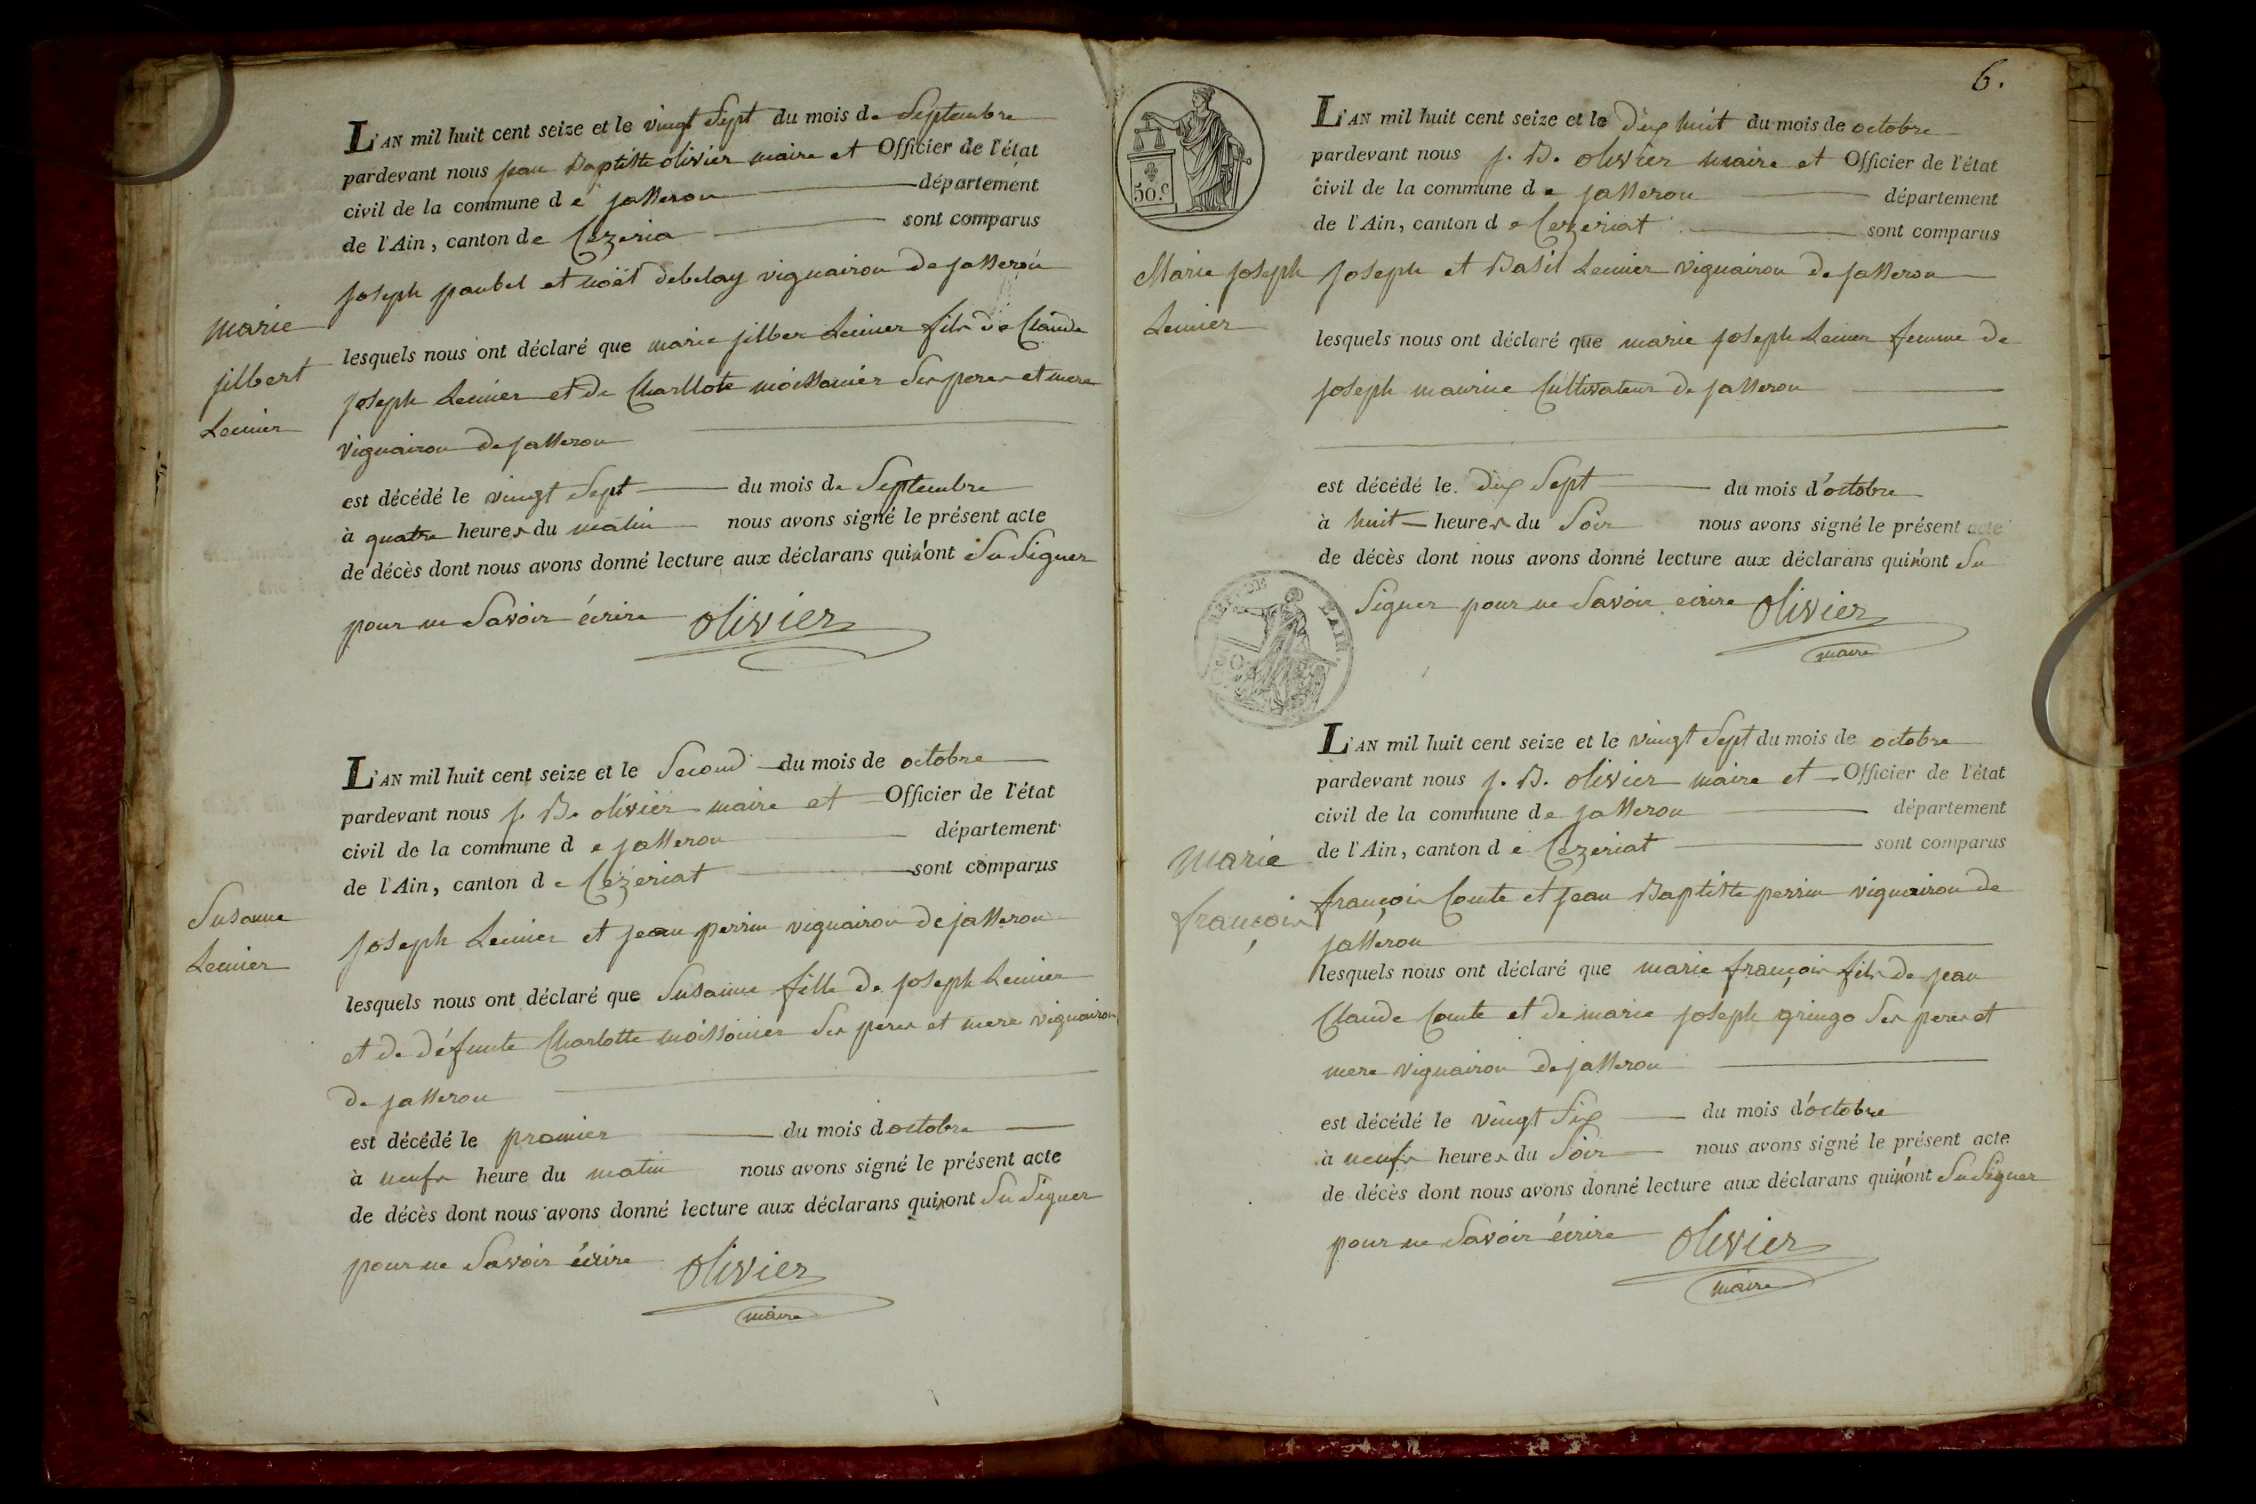 L'AN mil huit cent seize et le vingt Sept du mois de Septembre
pardevant nous jean Baptiste olivier maire et Officier de l'état
civil de la commune de jasseron département
de l'Ain, canton de Cezeria sont comparus
joseph paubel et noël debelay vignairon de jasseron
marie
jilbert
Lenier
lesquels nous ont déclaré que marie jilber Lenier fils de Claude
joseph Lenier et de Charllote moissonier ses peres et mere
vignairon de jasseron
est décédé le vingt Sept du mois de Septembre
à quatre heures du matin nous avons signé le présent acte
de décès dont nous avons donné lecture aux déclarans qui n'ont Su Signer
pour ne Savoir écrire olivier
L'AN mil huit cent seize et le Second du mois de octobre
pardevant nous j. B. olivier maire et Officier de l'état
civil de la commune de jasseron département
de l'Ain, canton de Cézériat sont comparus
Susanne
Lenier
joseph Lenier et jean perrin vignairon de jasseron
lesquels nous ont déclaré que Susanne fille de joseph Lenier
et de défunte Charlotte moissonier Ses peres et mere vignairon
de jasseron
est décédé le premier du mois doctobre
à neufs heure du matin nous avons signé le présent acte
de décès dont nous avons donné lecture aux déclarans qui n'ont Su Signer
pour ne Savoir écrire olivier
maire
6.
50.c
L'AN mil huit cent seize et le dix huit du mois de octobre
pardevant nous j. B. olivier maire et Officier de l'état
civil de la commune de jasseron département
de l'Ain, canton de Cezeriat sont comparus
Marie joseph
Lenier
joseph et Basil Lenier vignairon de jasseron
lesquels nous ont déclaré que marie joseph Lenier femme de
joseph maurice Cultivateur de jasseron
est décédé le dix Sept du mois d'octobre
à huit heures du Soir nous avons signé le présent acte
de décès dont nous avons donné lecture aux déclarans qui n'ont Su
Signer pour ne Savoir ecrire olivier
maire
L'AN mil huit cent seize et le vingt Sept du mois de octobre
pardevant nous j. B. olivier maire et Officier de l'état
civil de la commune de jasseron département
de l'Ain, canton de Cezeriat sont comparus
marie
françois
françois Comte et jean Baptiste perrin vignairon de
jasseron
lesquels nous ont déclaré que marie françois fils de jean
Claude Comte et de marie joseph gringo Ses peres et
mere vignairon de jasseron
est décédé le vingt Six du mois d'octobre
à neufs heures du Soir nous avons signé le présent acte
de décès dont nous avons donné lecture aux déclarans qui n'ont Su Signer
pour ne Savoir écrire olivier
maire